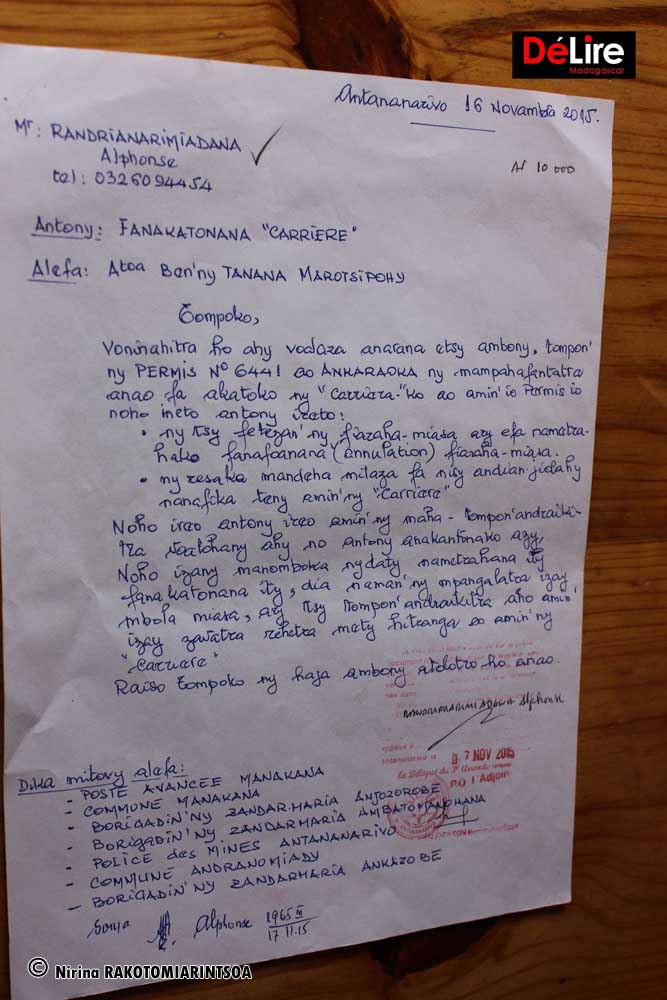 DéLire
Madagascar
Antananarivo 16 Novambra 2015.
Mr: RANDRIANARIMIADANA
Alphonse
tel: 0326094454
Ar 10 000
Antony: FANAKATONANA "CARRIERE"
Alefa: Atoa Ben'ny TANANA MAROTSIPOHY
Tompoko,
Voninahitra ho ahy voalaza anarana etsy ambony, tompon'
ny PERMIS N° 6441 ao ANKARAOKA ny mampahafantatra
anao fa akatoko ny "Carriere" ko ao amin'io Permis io
noho ireto antony ireto:
• ny tsy fetezan'ny fiaraha-miasa ary efa nametra-
hako fanafoanana (annulation) fiaraha-miasa.
• ny resaka mandeha milaza fa nisy andian-jiolahy
nanafika teny amin'ny "Carriere"
Noho ireo antony ireo amin'ny maha-tompon'andraiki-
tra voalohany ahy no antony anakantonako azy,
Noho izany manomboka ny daty nametrahana ity
fanakatonana ity, dia naman'ny mpangalatra izay
mbola miasa, ary tsy tompon'andraikitra aho amin'
izay zavatra rehetra mety hitranga ao amin'ny
"Carriere"
Raiso Tompoko ny haja ambony atolotro ho anao.
RANDRIANARIMIADANA Alphonse
07 NOV 2015
Le Délégué du
P.O l'Adjoint
Dika mitovy alefa:
- POSTE AVANCEE MANAKANA
- COMMUNE MANAKANA
- BORIGADIN'NY ZANDARMARIA ANJOZOROBE
- BORIGADIN'NY ZANDARMARIA AMBATOMANOHANA
- POLICE des MINES ANTANANARIVO
- COMMUNE ANDRANOMIADY
- BORIGADIN'NY ZANDARMARIA ANKAZOBE
Sonia Alphonse 1965 III
17 11.15
© Nirina RAKOTOMIARINTSOA